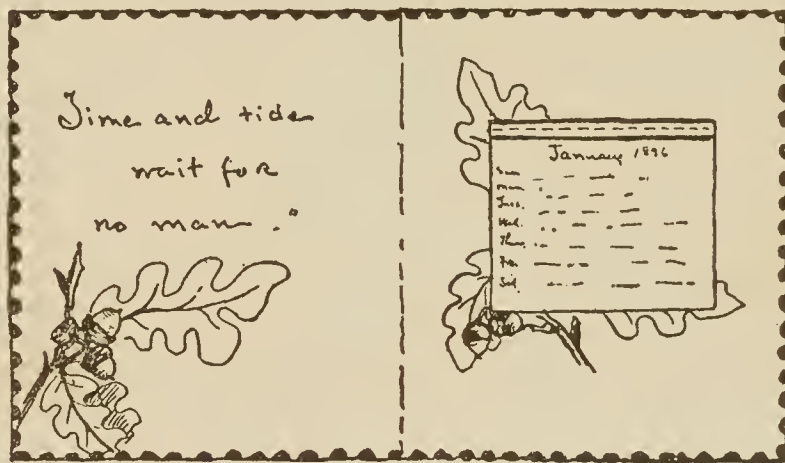 Time and tide
wait for
no man."
January 1896
Sun.
Mon.
Tues.
Wed.
Thur.
Fri.
Sat.